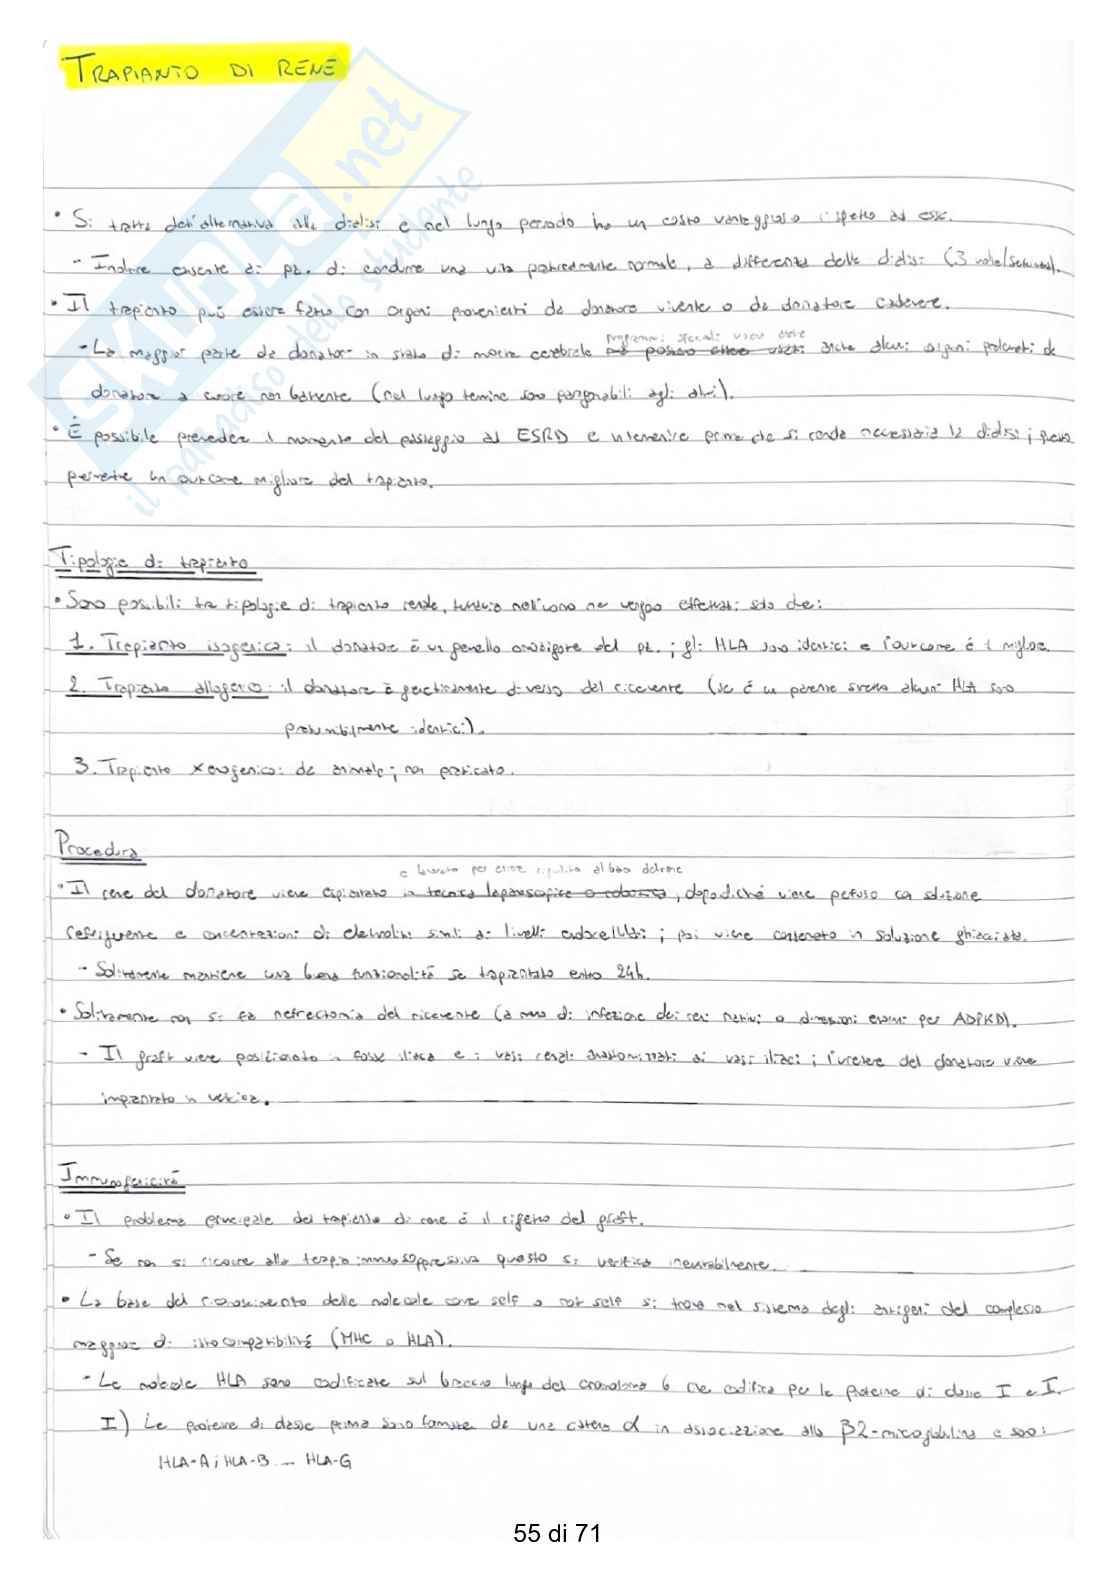 TRAPIANTO DI RENE
SKUOLA.net
il paradiso dello studente
• Si tratta dell'alternativa alla dialisi e nel lungo periodo ha un costo vantaggioso rispetto ad essa.
- Inoltre consente al pz. di condurre una vita praticamente normale, a differenza della dialisi (3 volte/settimana).
• Il trapianto può essere fatto con organi provenienti da donatore vivente o da donatore cadavere.
programmi speciali usano anche
- La maggior parte da donatori in stato di morte cerebrale ma possono essere usati anche alcuni organi prelevati da
donatore a cuore non battente (nel lungo termine sono paragonabili agli altri).
• È possibile prevedere il momento del passaggio ad ESRD e intervenire prima che si renda necessaria la dialisi; questo
permette un outcome migliore del trapianto.
Tipologie di trapianto
• Sono possibili tre tipologie di trapianto renale, tuttavia nell'uomo ne vengono effettuati solo due:
1. Trapianto isogenico: il donatore è un gemello omozigote del pz.; gli HLA sono identici e l'outcome è il migliore.
2. Trapianto allogenico: il donatore è geneticamente diverso dal ricevente (se è un parente stretto alcuni HLA sono
probabilmente identici).
3. Trapianto xenogenico: da animale; non praticato.
Procedura
e lavato per essere ripulito al bass
• Il rene del donatore viene espiantato in tecnica laparoscopica o robotica, dopodiché viene perfuso con soluzione
refrigerante e concentrazioni di elettroliti simili ai livelli endocellulari; poi viene conservato in soluzione ghiacciata.
- Solitamente mantiene una buona funzionalità se trapiantato entro 24h.
• Solitamente non si fa nefrectomia del ricevente (a meno di infezione dei reni nativi o dimensioni enormi per ADPKD).
- Il graft viene posizionato in fossa iliaca e i vasi renali anastomizzati ai vasi iliaci; l'uretere del donatore viene
impiantato in vescica.
Immunogenicità
• Il problema principale del trapianto di rene è il rigetto del graft.
- Se non si ricorre alla terapia immunosoppressiva questo si verifica inevitabilmente.
• La base del riconoscimento delle molecole come self o not self si trova nel sistema degli antigeni del complesso
maggiore di istocompatibilità (MHC o HLA).
- Le molecole HLA sono codificate sul braccio lungo del cromosoma 6 che codifica per le proteine di classe I e II.
I) Le proteine di classe prima sono formate da una catena α in associazione alla β2-microglobulina e sono:
HLA-A; HLA-B ... HLA-G
55 di 71